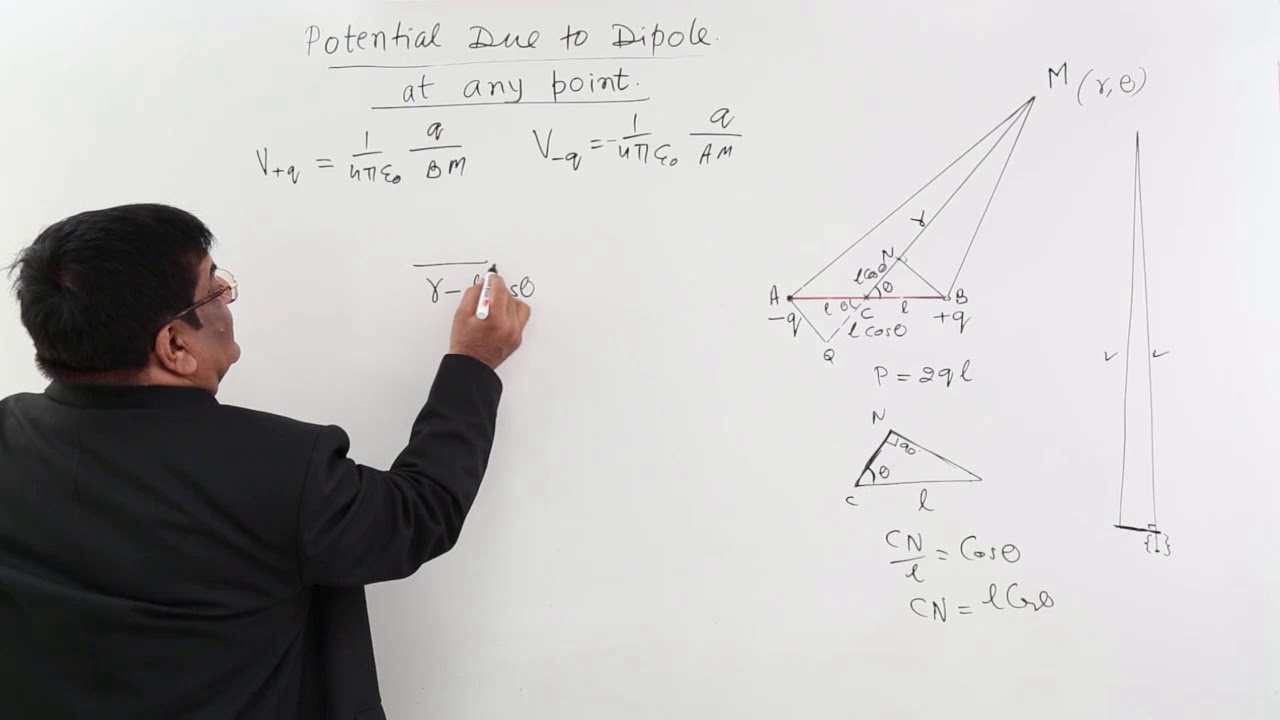 Potential Due to Dipole.
at any point.
V+q = 1/4πε₀ q/BM
V-q = -1/4πε₀ q/AM
M (r, θ)
r
N
lcosθ
θ
A
l
θ
C
l
B
-q
l cosθ
+q
Q
P = 2ql
r - l cosθ
N
90
θ
C
l
CN/l = Cosθ
CN = lCosθ
{I}